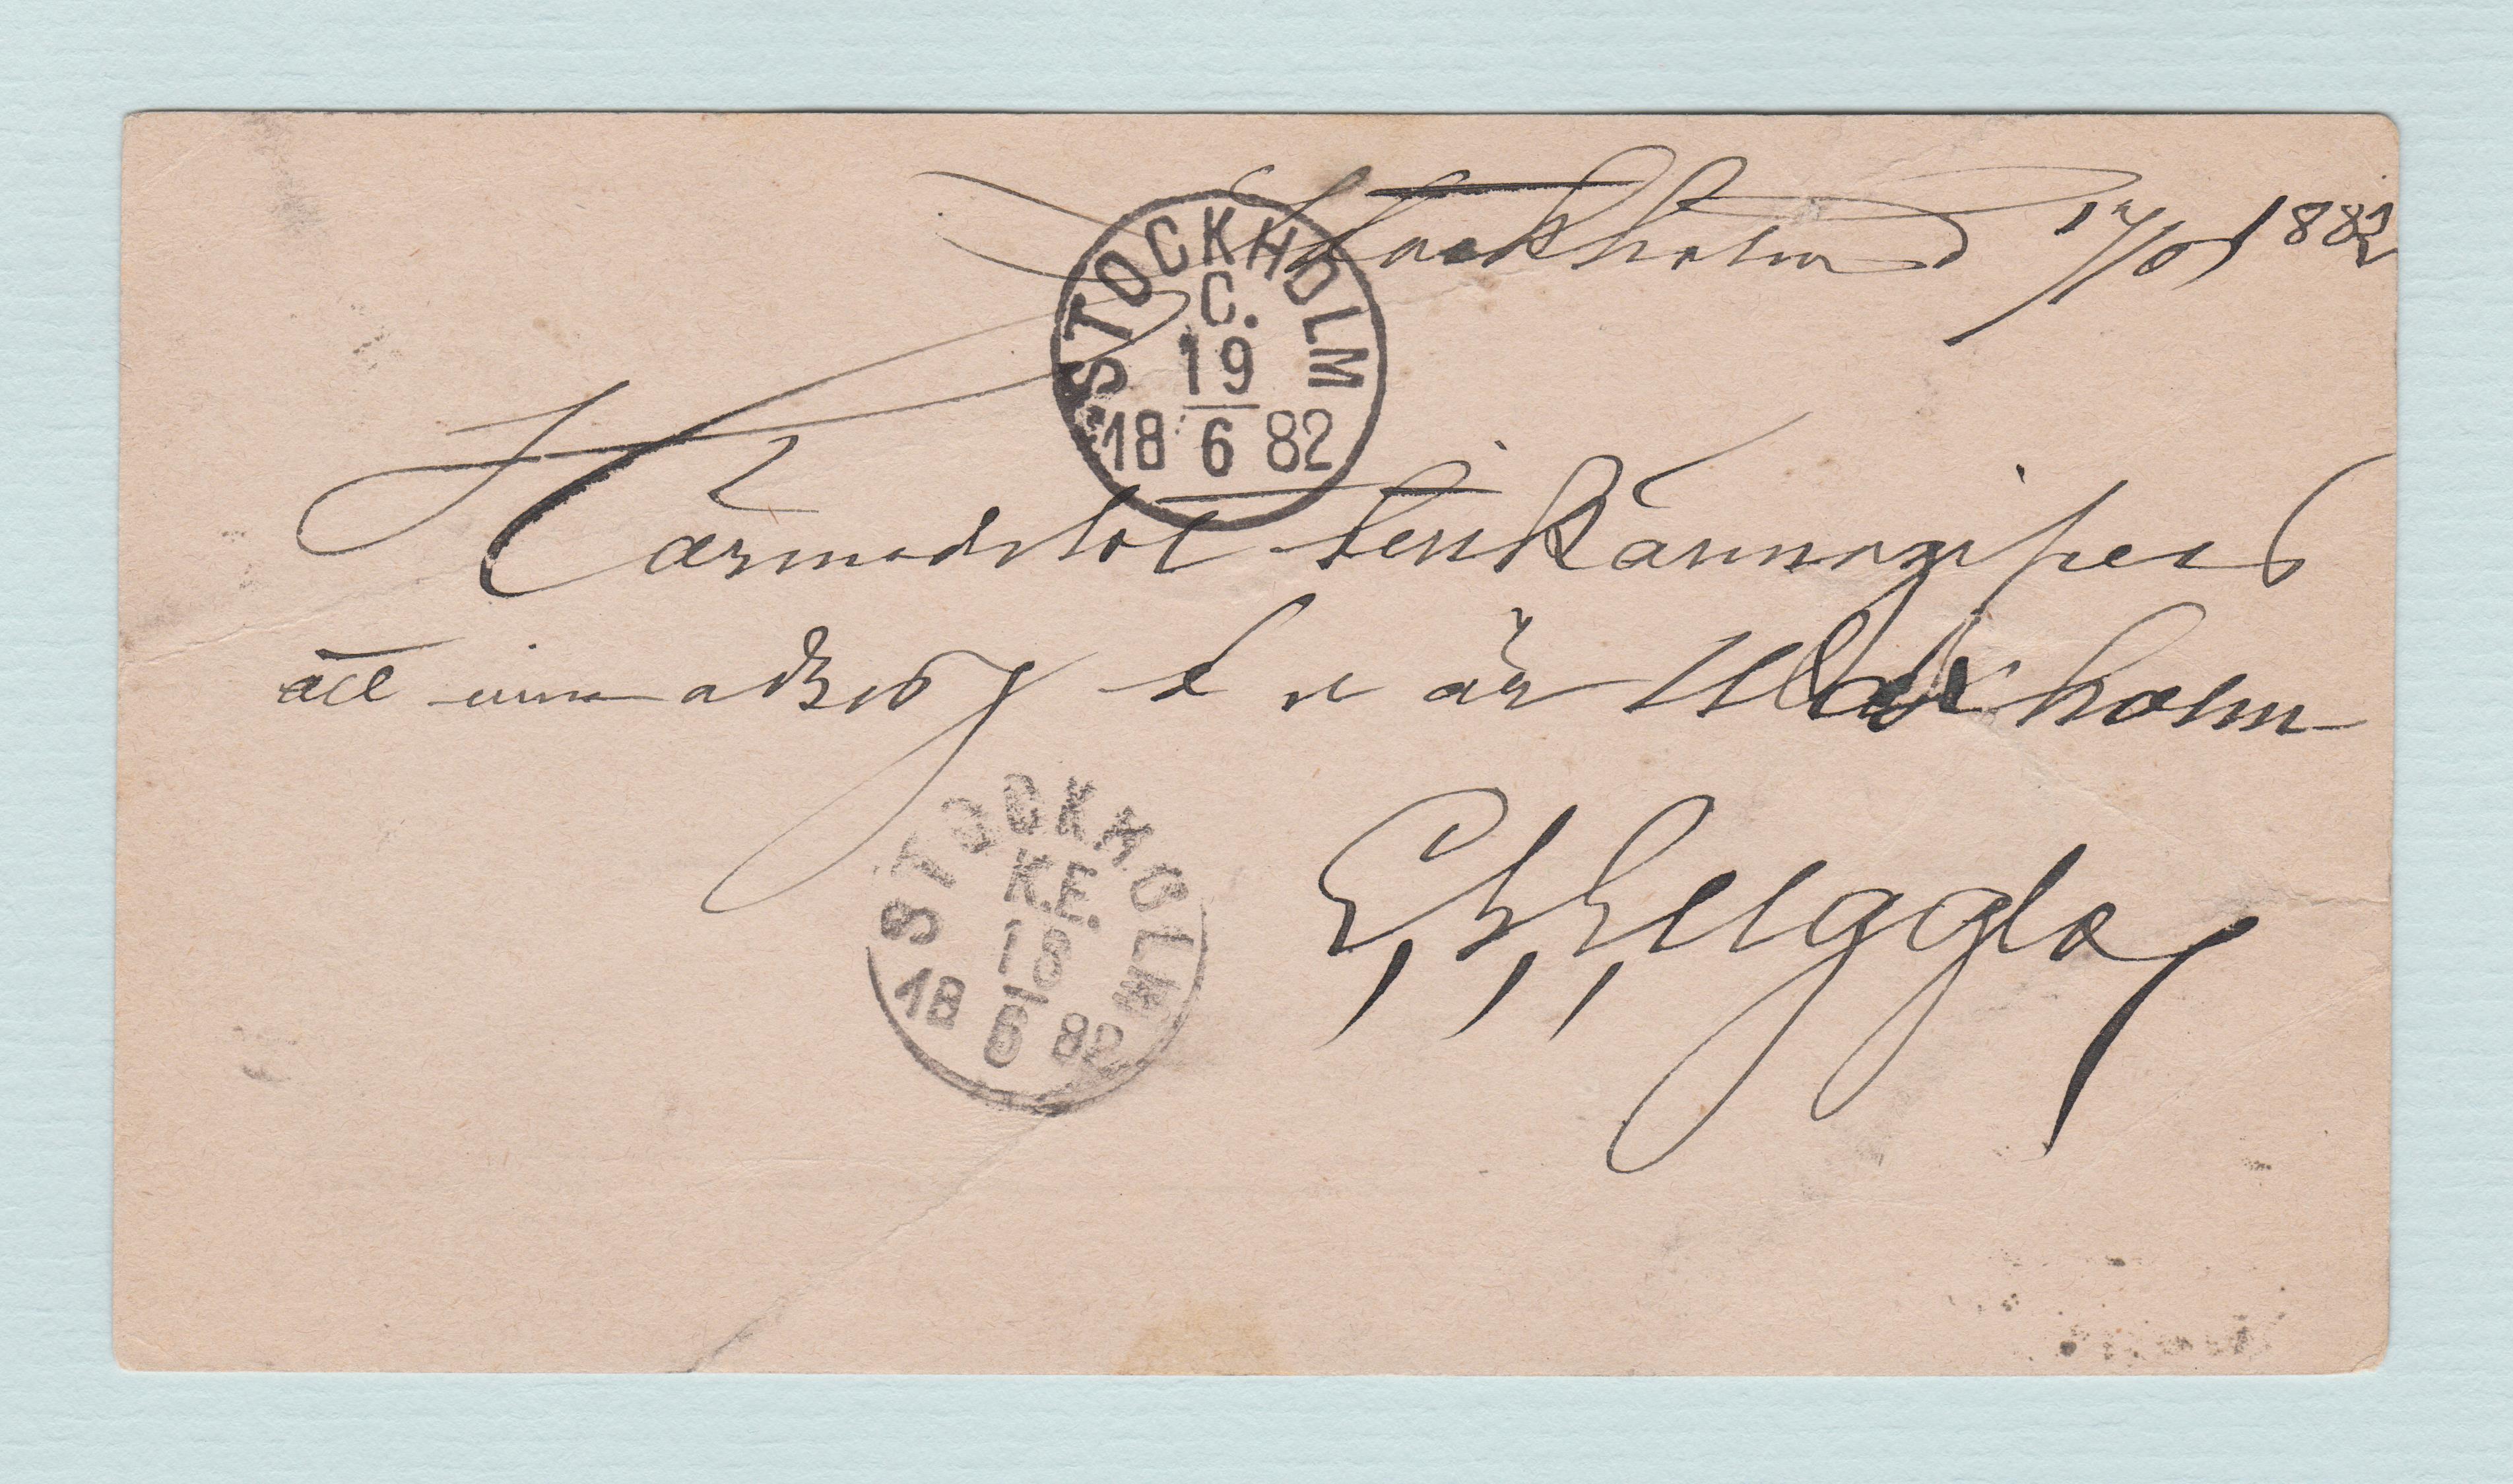 Stockholm 17/6 1882
STOCKHOLM
C.
19
18 6 82
Härmedelst tillkännagifves
att min adress f n är Waxholm
STOCKHOLM
K.E.
18
18 6 82
Ruggla